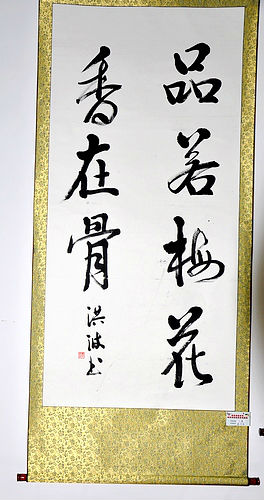 品若梅花
香在骨
洪波书